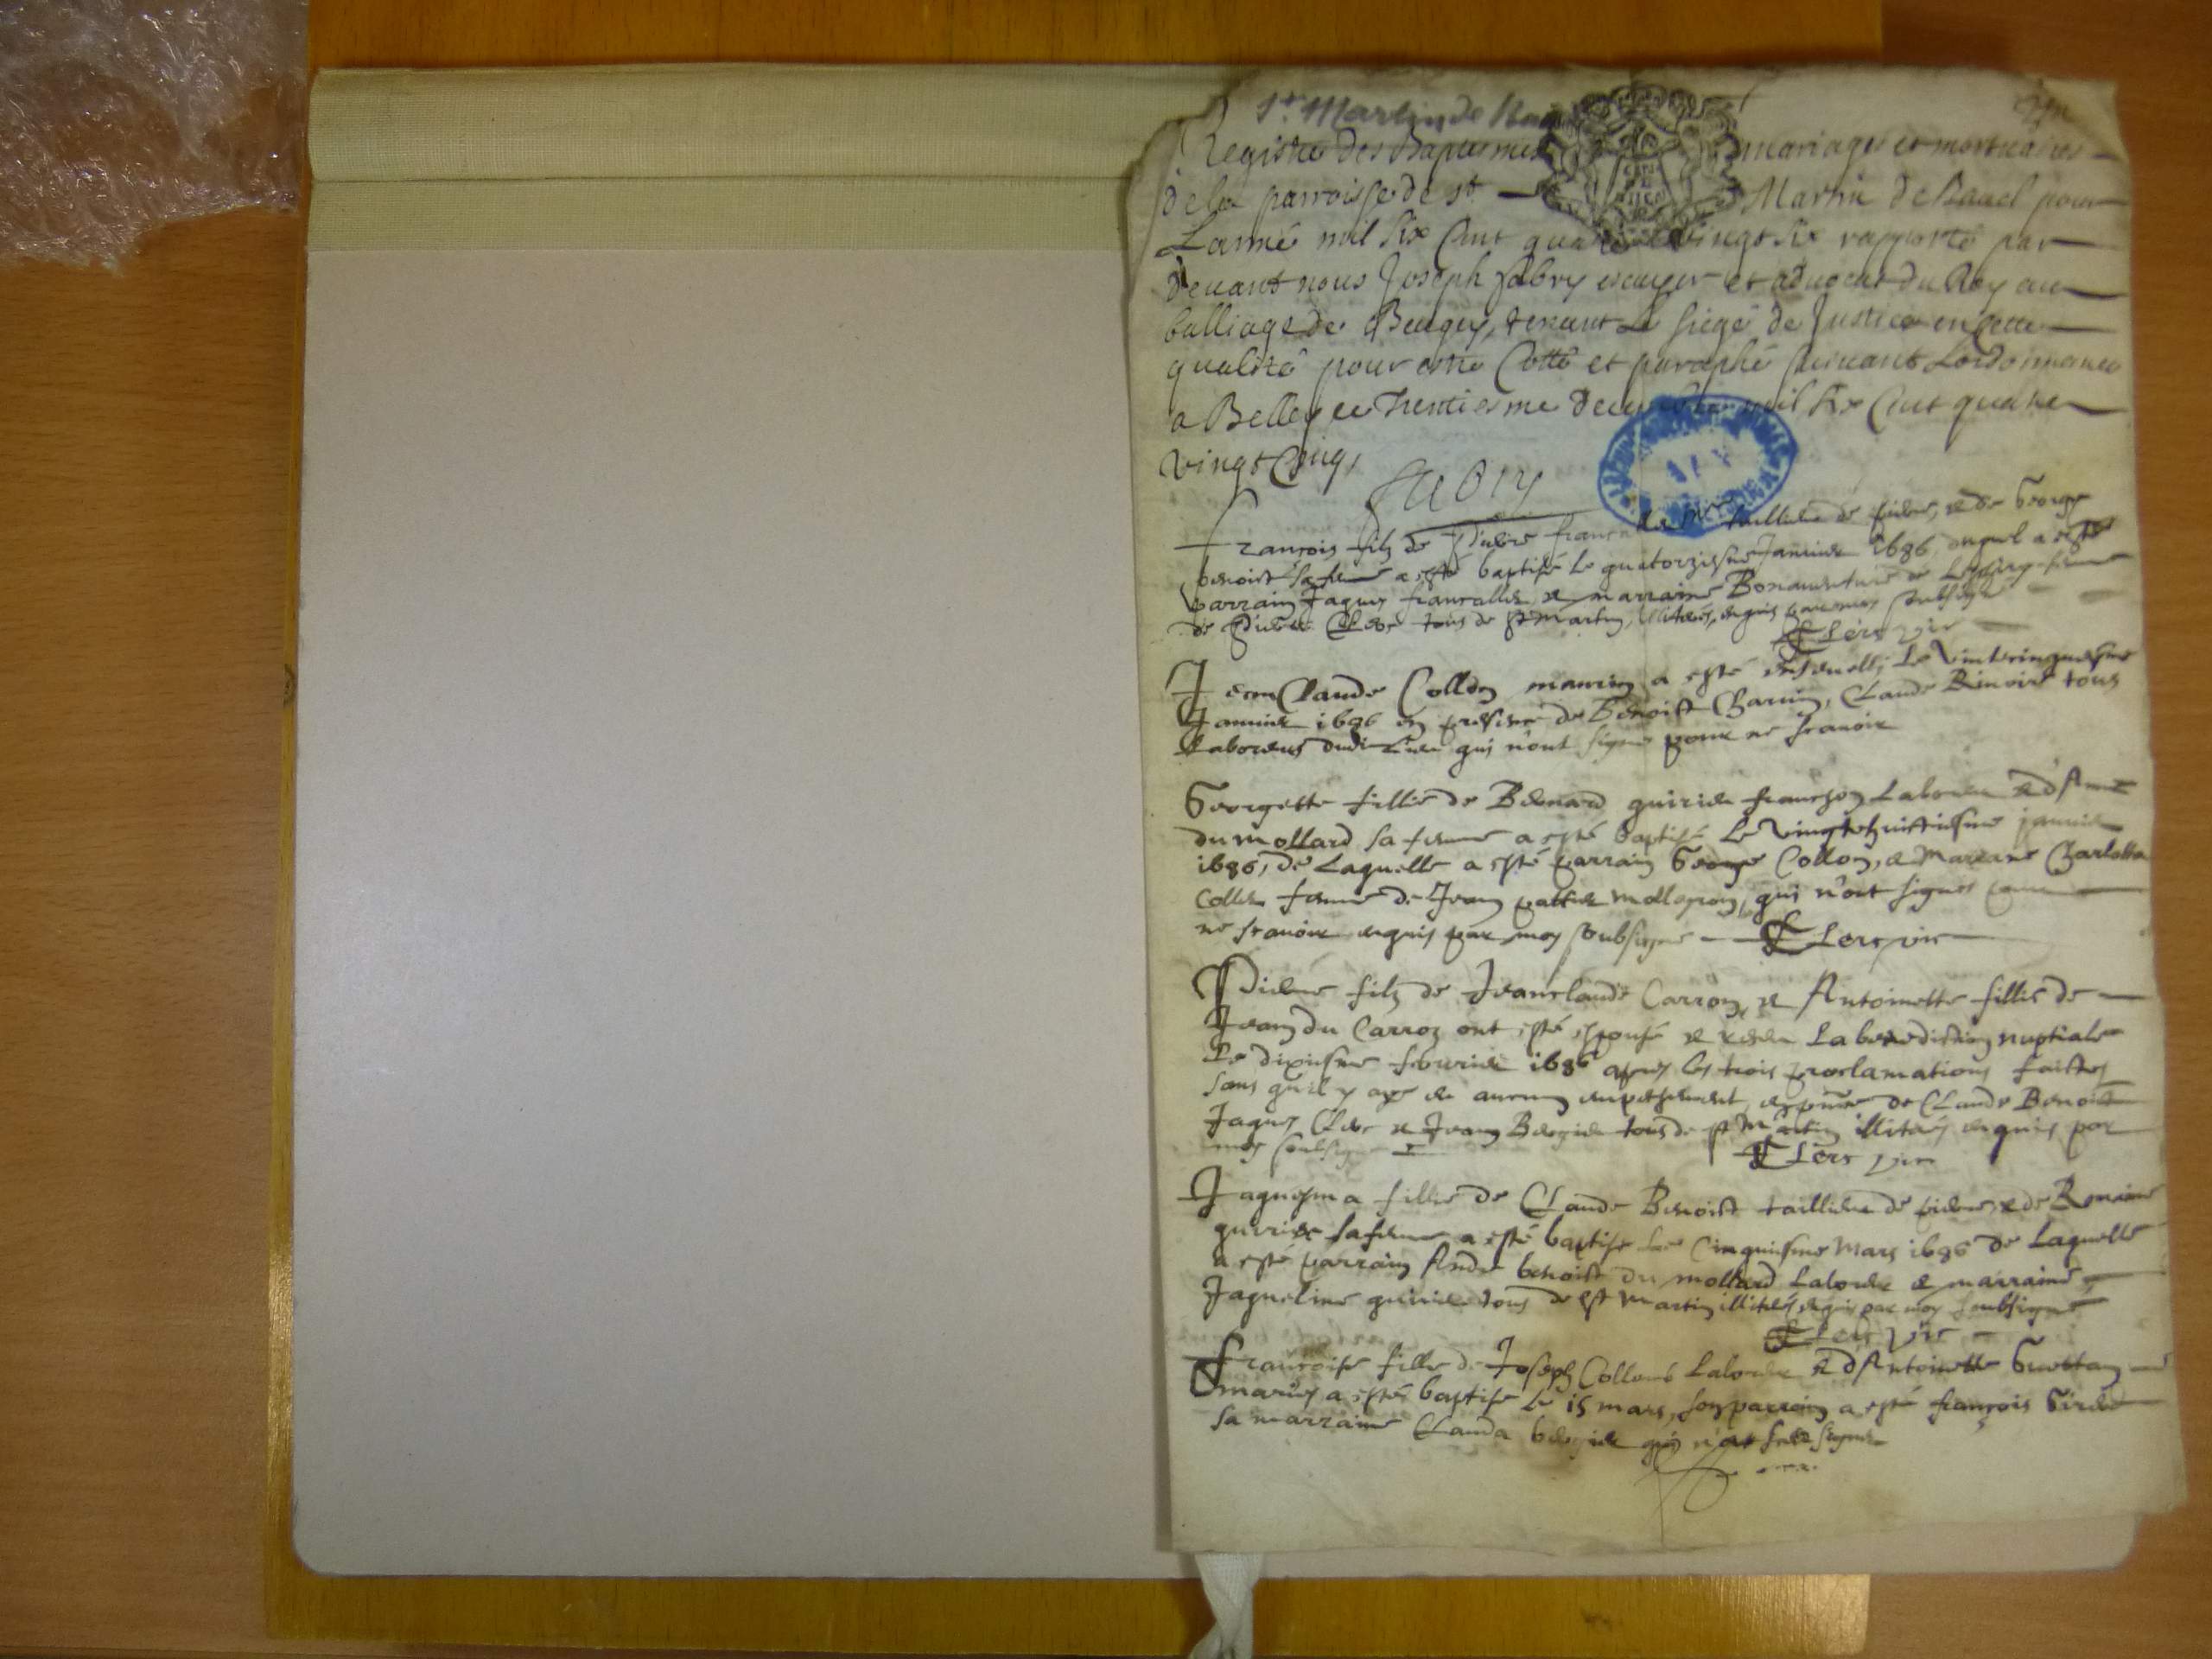 St. Martin de
Registre des Baptesmes mariages et mortuaires
de la parroisse de st Martin de Bauel pour
Lanné mil six Cent quatre vingt six rapporté par
deuant nous Joseph fabry escuyer et aduocat du Roy au
balliage de Beugey, tenant le siege de Justice en cette
qualité pour estre Cotté et paraphé suiuant Lordonnance
a Belley ce Trentiesme decembre mil six Cent quatre
vingt Cinq,
fabry
François filz de Pierre tallieur de pierre, et de George
benoist sa femme a esté baptisé le quatorziesme Januier 1686 duquel a esté
parrain Jaques francallet et marraine Bonauenture de femme
de Pierre Clerc tous de st Martin, illiterés, enquis par moy soubsigné
Clerc vic
Jean Claude Collon a esté enseuelli le vintcinquiesme
Januier 1686 en presence de Benoist Charuin, Claude tous
Laboreurs dudit Lieu qui n'ont signé pour ne scauoir
Georgette fillie de Bernard guirier Laboreur et d'
du mollard sa femme a esté baptisé le vingthuittiesme januier
1686, de Laquelle a esté parrain George Collon, et Marrane Charlotta
Collet femme de Jean qui n'ont signés pour
ne scauoir enquis par moy soubsigné Clerc vic
Pierre filz de Jeanclaude Carron, et Antoinette fillie de
Jean du Carroz ont esté espousé et receu La benediction nuptiale
Le dixiesme feburier 1686 apres les trois proclamations faittes
sans qu'il y aye eu aucung empechement, en pnce de Claude Benoist
Jaques Clerc et Jean Bergier tous de st Martin illiterés enquis par
moy soubsigné Clerc vic
Jaquema fillie de Claude Benoist taillieur de pierre et de Romaine
guirier sa femme a esté baptisé Le Cinquiesme Mars 1686 de Laquelle
a esté parrain André benoist du mollard Laboreur et marraine
Jaqueline guirier tous de st Martin illiterés enquis par moy soubsigné
Clerc vic
Françoise fille de Joseph Collomb Laboreur et d'Antoinette
mariés a estés baptisé le 15 mars, son parrain a esté françois
sa marraine Clauda bergier qui n'ont sceu signer